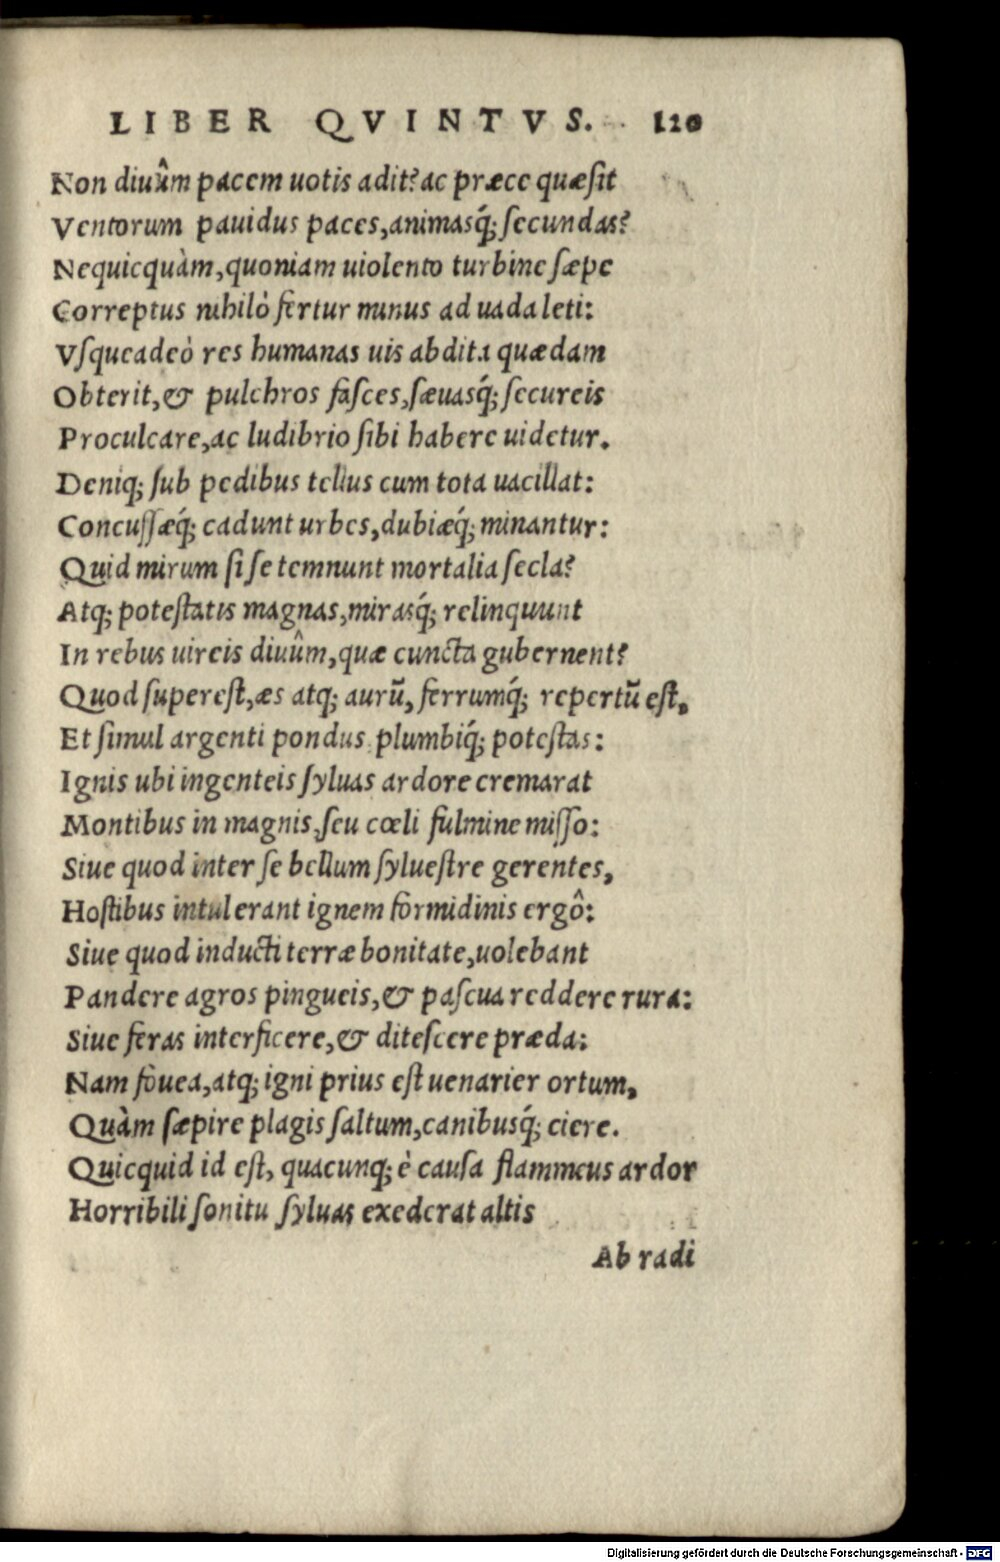 LIBER QVINTVS. 120
Non diuûm pacem uotis adit? ac præce quæſit
Ventorum pauidus paces, animasq́; ſecundas?
Nequicquàm, quoniam uiolento turbine ſæpe
Correptus nihilò fertur minus ad uada leti:
Vſqueadeò res humanas uis abdita quædam
Obterit, & pulchros faſces, ſæuasq́; ſecureis
Proculcare, ac ludibrio ſibi habere uidetur.
Deniq; ſub pedibus tellus cum tota uacillat:
Concuſſæq́; cadunt urbes, dubiæq́; minantur:
Quid mirum ſi ſe temnunt mortalia ſecla?
Atq; poteſtatis magnas, mirasq́; relinquunt
In rebus uireis diuûm, quæ cuncta gubernent?
Quod ſupereſt, æs atq; aurū, ferrumq́; repertū eſt,
Et ſimul argenti pondus plumbiq́; poteſtas:
Ignis ubi ingenteis ſyluas ardore cremarat
Montibus in magnis, ſeu cœli fulmine miſſo:
Siue quod inter ſe bellum ſylueſtre gerentes,
Hoſtibus intulerant ignem formidinis ergô:
Siue quod inducti terræ bonitate, uolebant
Pandere agros pingueis, & paſcua reddere rura:
Siue feras interficere, & diteſcere præda:
Nam fouea, atq; igni prius eſt uenarier ortum,
Quàm ſæpire plagis ſaltum, canibusq́; ciere.
Quicquid id eſt, quacunq; è cauſa flammeus ardor
Horribili ſonitu ſyluas exederat altis
Ab radi
Digitalisierung gefördert durch die Deutsche Forschungsgemeinschaft - DFG